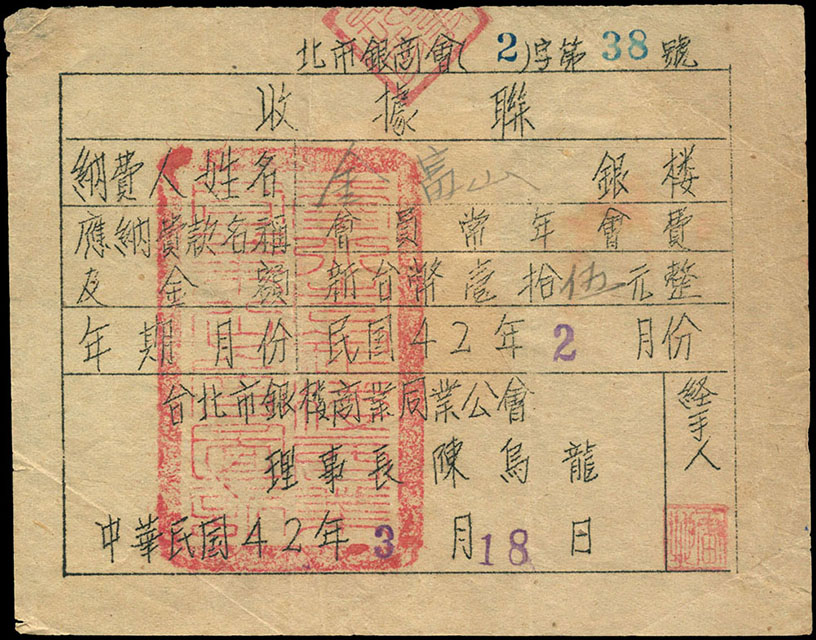 北市銀商會(2)字第38號
收據聯
納費人姓名 金富山 銀楼
應納費款名稱 會員常年會費
及金額 新台幣壹拾伍元整
年期月份 民国42年2月份
台北市銀楼商業同業公會
理事長陳烏龍
中華民国42年3月18日
経手人